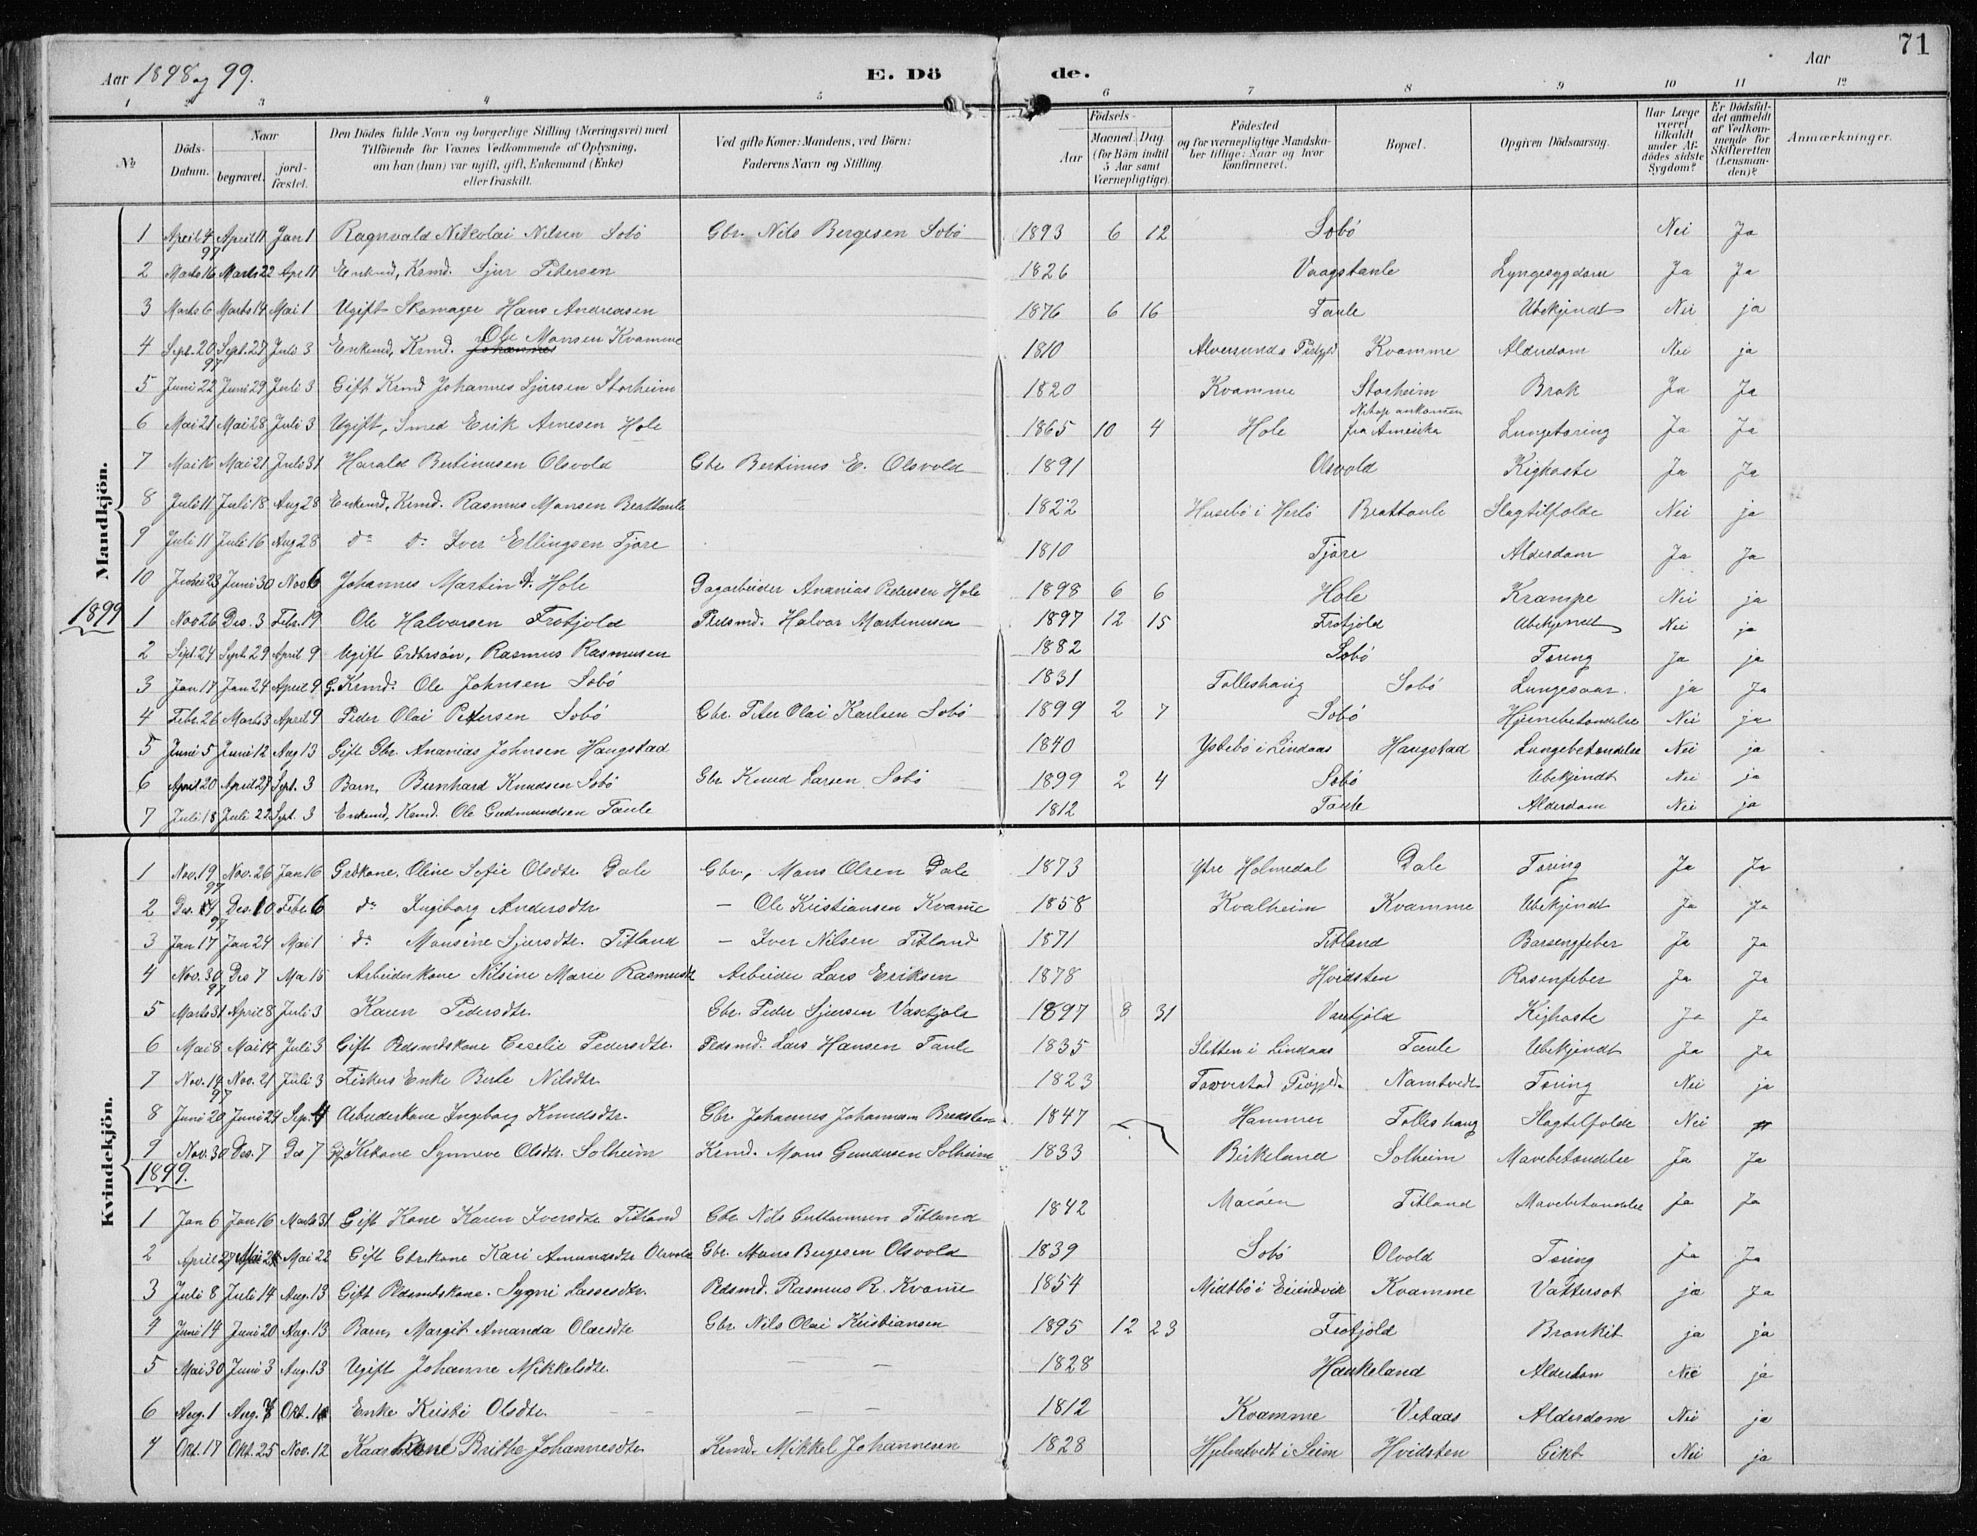 Aar 1898 og 99.
E. Döde.
Aar
71
1 2 3 4 5 6 7 8 9 10 11 12
No
Döds-Datum.
Naar
begravet.
jord-fæstet.
Den Dödes fulde Navn og borgerlige Stilling (Næringsvei) med Tilföiende for Voxnes Vedkommende af Oplysning, om han (hun) var ugift, gift, Enkemand (Enke) eller fraskilt.
Ved gifte Koner: Mandens, ved Börn: Faderens Navn og Stilling.
Födsels-
Aar
Maaned Dag (for Börn indtil 5 Aar samt Værnepligtige).
Födested og for værnepligtige Mandskaber tillige: Naar og hvor konfirmeret.
Bopæl.
Opgiven Dödsaarsag.
Har Læge været tilkaldt under Afdödes sidste Sygdom?
Er Dödsfaldet anmeldt af Vedkommende for Skifteretten (Lensmanden)?
Anmærkninger.
Mandkjön.
1 April 4 97 April 11 Jan 1 Ragnvald Nikolai Nilsen Sobö Gbr. Nils Bergesen Sobö 1893 6 12 Sobö Nei Ja
2 Marts 16 Marts 22 Apr 11 Enkmd, Krmd. Sjur Petersen 1826 Vaagstaule Lyngesygdom Ja Ja
3 Marts 6 Marts 14 Mai 1 Ugift Skomager Hans Andreasen 1876 6 16 Taule Ubekjendt Nei ja
4 Sept. 20 97 Sept. 27 Juli 3 Enkmd, Krmd. Johannes Ole Monsen Kvamme 1810 Alversunds Kvamme Alderdom Nei ja
5 Juni 22 Juni 29 Juli 3 Gift Krmd Johannes Sjursen Storheim 1820 Kvamme Storheim Brok Ja Ja
6 Mai 21 Mai 28 Juli 3 Ugift, Smed Erik Arnesen Hole 1865 10 4 Hole fra Amerika Lungetæring Ja Ja
7 Mai 16 Mai 21 Juli 31 Harald Bertinusen Olsvold Gbr Bertinus E. Olsvold 1891 Olsvold Kighoste Ja Ja
8 Juli 11 Juli 18 Aug 28 Enkmd, Krmd. Rasmus Monsen Brattaule 1822 Husebö i Herlö Brattaule Slagtilfælde Nei ja
9 Juli 11 Juli 16 Aug 28 do do Iver Ellingsen Fjøre 1810 Fjøre Alderdom Ja Ja
10 Juni 23 Juni 30 Nov 6 Johannes Martin A. Hole Dagarbeider Ananias Pedersen Hole 1898 6 6 Hole Krampe Nei ja
1899
1 Nov 26 Des. 3 Febr. 19 Ole Halvorsen Frotjold Pldsmd. Halvor Martinusen 1897 12 15 Frotjold Ubekjendt Nei ja
2 Sept. 24 Sept. 29 April 9 Ugift Rasmus Rasmusen 1882 Sobö Tæring Ja ja
3 Jan 17 Jan 24 April 9 G. Krmd. Ole Johnsen Sobö 1831 Tolleshaug Sobö Lungesaar. ja Ja
4 Febr. 26 Marts 3 April 9 Peder Olai Petersen Sobö Gbr. Peter Olai Karlsen Sobö 1899 2 7 Sobö Hjernebetændelse Nei ja
5 Juni 5 Juni 12 Aug 13 Gift Gbr. Ananias Johnsen Haugstad 1840 Ystebö i Lindaas Haugstad Lungebetændelse Nei ja
6 April 20 April 27 Sept. 3 Barn, Bernhard Knudsen Sobö Gbr Knud Larsen Sobö 1899 2 4 Sobö Ubekjendt Nei ja
7 Juli 18 Juli 22 Sept. 3 Enkmd, Krmd. Ole Gudmundsen Taule 1812 Taule Alderdom Nei ja
Kvindekjön.
1 Nov. 19 97 Nov. 26 Jan 16 Grdkone. Oline Sofie Olsdtr Dale Gbr, Mons Olsen Dale 1873 Ytre Holmedal Dale Tæring Ja Ja
2 Des. 4 97 Des. 10 Febr. 6 do Ingeborg Andersdtr — Ole Kristiansen Kvame 1858 Kvalheim Kvamme Ubekjendt Ja Ja
3 Jan 17 Jan 24 Mai 1 do Monsine Sjursdtr. Titland — Iver Nilsen Titland 1871 Titland Barselfeber Ja Ja
4 Nov. 30 97 Des 7 Ma 15 Arbeiderkone Nilsine Marie Rasmusdtr Arbeider Lars Eriksen 1878 Hvidsten Rosenfeber Ja Ja
5 Marts 31 April 8 Juli 3 Karen Pedersdtr. Gbr. Peder Sjursen Vasetjold 1897 8 31 Vasetjold Kighoste Ja Ja
6 Mai 8 Mai 14 Juli 3 Gift Pldsmdskone Cecelie Pedersdtr. Pldsmd. Lars Hansen Taule 1835 Sletten i Lindaas Taule Ubekjendt Ja Ja
7 Nov. 14 97 Nov. 21 Juli 3 Fiskers Enke Berte Nilsdtr 1823 Namtvedt Tæring Nei ja
8 Juni 20 Juni 24 Sep. 4 Arbeiderkone Ingeborg Knudsdtr. Gbr Johannes Johannesen 1847 Hammer Tolleshaug Slagtilfælde Nei
9 Nov. 30 Des. 7 Des 7 Synneve Olsdtr. Solheim Krmd. Mons Gundersen Solheim 1833 Birkeland Solheim Mavebetændelse Ja Ja
1899.
1 Jan 6 Jan 16 Marts 31 Gift Kone Karen Iversdtr Titland Gbr. Nils Guttormsen Titland 1842 Maröen Titland Mavebetændelse Ja Ja
2 April 27 Mai 2 Mai 22 Gift Gbrkone Kari Amundsdtr Olsvold Gbr. Mons Bergesen Olsvold 1839 Sobö Olvold Tæring Ja Ja
3 Juli 8 Juli 14 Aug. 13 Gift Pldsmdskone. Sygni Lassesdtr. Pldsmd. Rasmus R. Kvame 1854 Midtbö i Eivindvik Kvamme Vattersot ja Ja
4 Juni 14 Juni 20 Aug. 13 Barn, Margit Amanda Olaisdtr Gbr Nils Olai Kristiansen 1895 12 23 Frotjold Bronkit ja ja
5 Mai 30 Juni 3 Aug. 13 Ugift Johanne Mikkelsdtr. — — 1828 Haukeland Alderdom Nei ja
6 Aug. 1 Aug. 8 Okt. 1 Enke Kristi Olsdtr. — — 1812 Kvamme Vetaas Alderdom Nei ja
7 Okt. 17 Okt. 25 Nov. 12 Kaarkone Brithe Johannesdtr. Krmd. Mikkel Johannesen 1828 Hjelmtvedt i Seim Hvidsten Gikt Nei ja